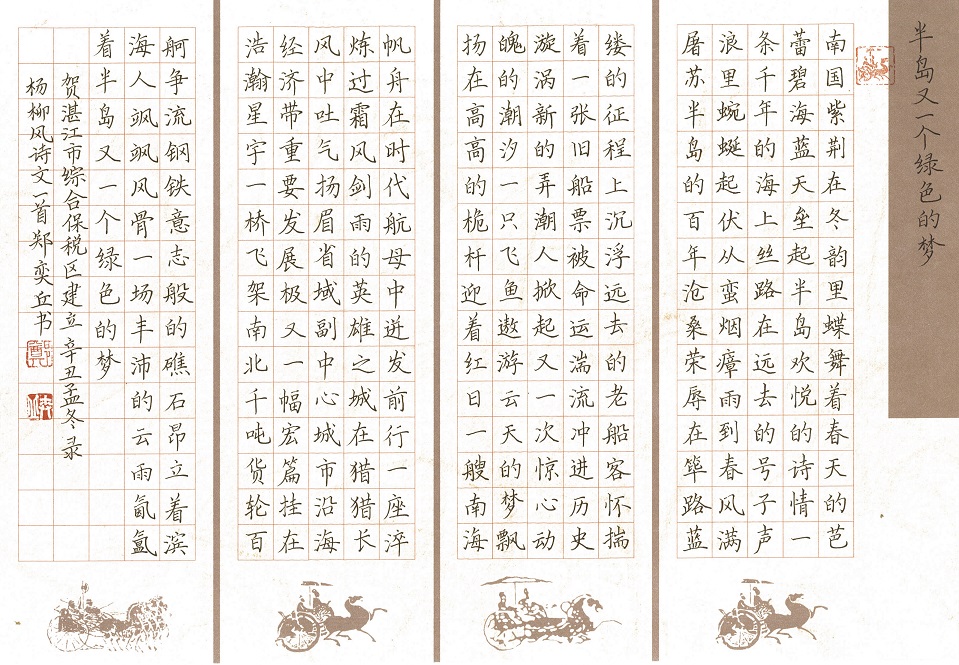 半岛又一个绿色的梦
南国紫荆在冬韵里蝶舞着春天的芭
蕾碧海蓝天垒起半岛欢悦的诗情一
条千年的海上丝路在远去的号子声
浪里蜿蜒起伏从蛮烟瘴雨到春风满
屠苏半岛的百年沧桑荣辱在筚路蓝
缕的征程上沉浮远去的老船客怀揣
着一张旧船票被命运湍流冲进历史
漩涡新的弄潮人掀起又一次惊心动
魄的潮汐一只飞鱼遨游云天的梦飘
扬在高高的桅杆迎着红日一艘南海
帆舟在时代航母中迸发前行一座淬
炼过霜风剑雨的英雄之城在猎猎长
风中吐气扬眉省域副中心城市沿海
经济带重要发展极又一幅宏篇挂在
浩瀚星宇一桥飞架南北千吨货轮百
舸争流钢铁意志般的礁石昂立着滨
海人飒飒风骨一场丰沛的云雨氤氲
着半岛又一个绿色的梦
贺湛江市综合保税区建立辛丑孟冬录
杨柳风诗文一首郑奕丘书